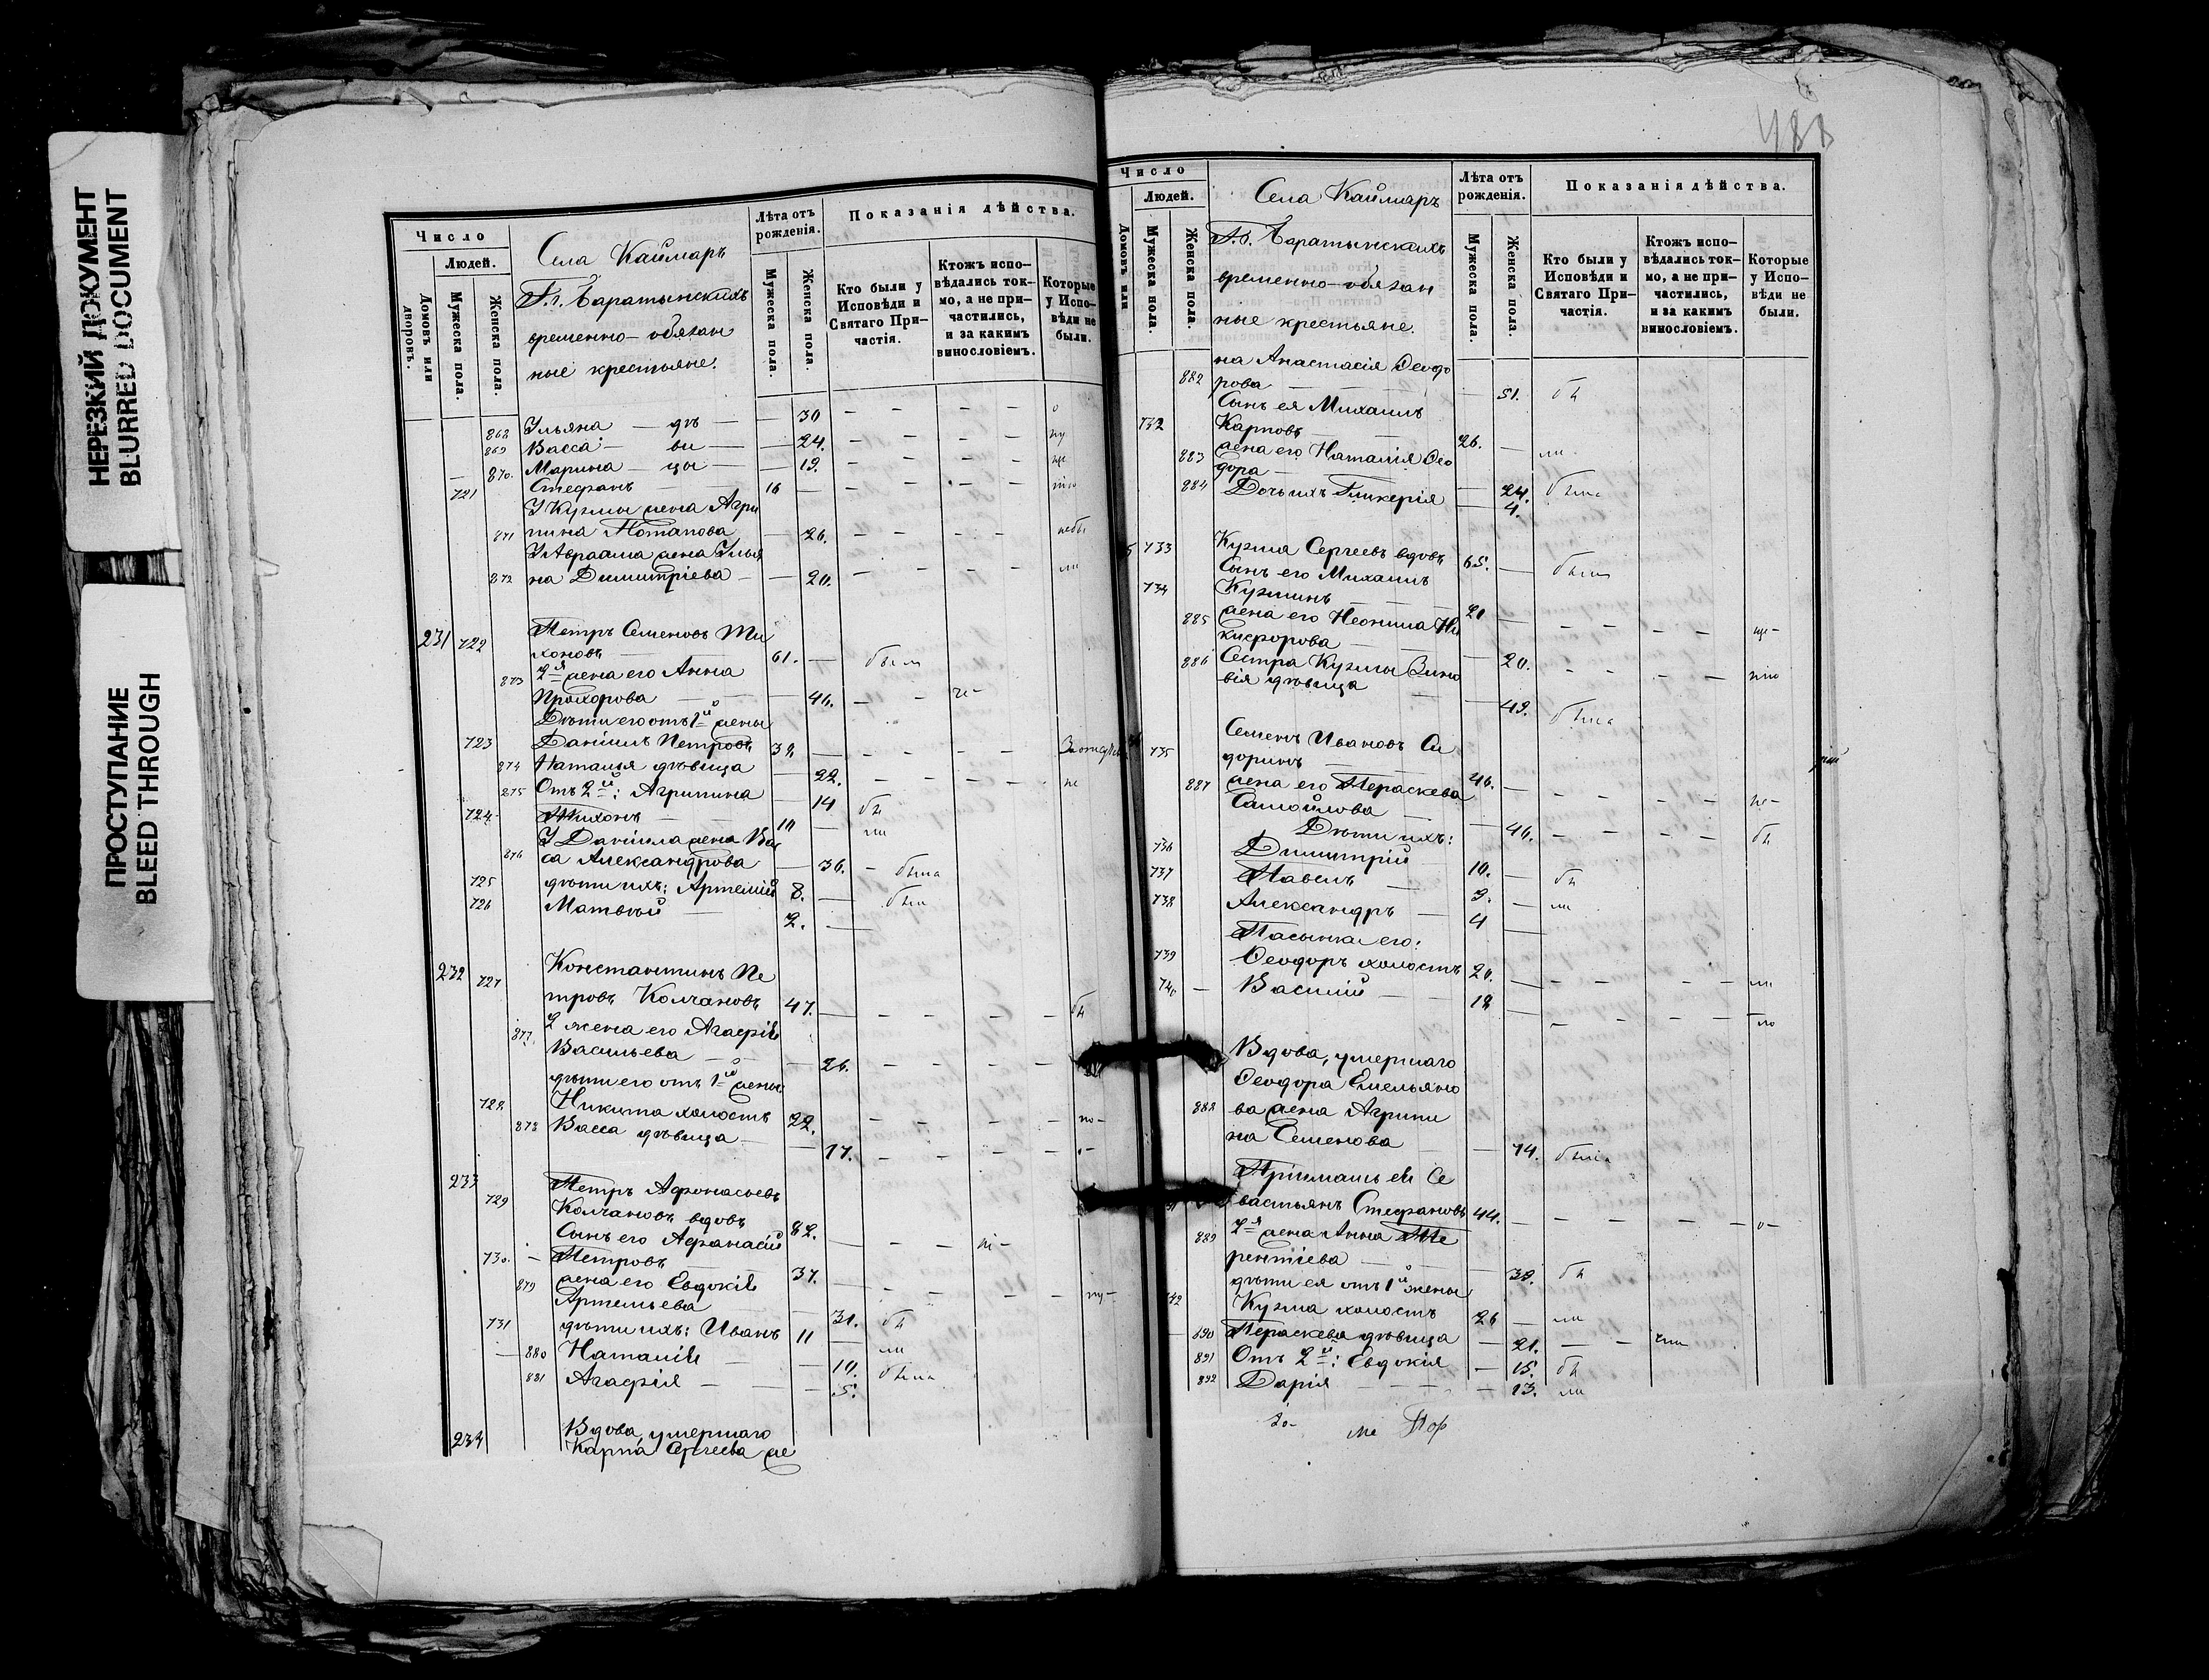 НЕРЕЗКИЙ ДОКУМЕНТ
BLURRED DOCUMENT
ПРОСТУПАНИЕ
BLEED THROUGH
Число
Людей.
Домовъ или дворовъ.
Мужеска пола.
Женска пола.
Села Каймаръ
Г.г. Баратынскихъ
временно-обязан
ные крестьяне.
Лѣта отъ рожденія.
Мужеска пола.
Женска пола.
Показанія дѣйства.
Кто были у Исповѣди и Святаго Причастія.
Ктожъ исповѣдались токмо, а не причастились, и за какимъ винословіемъ.
Которые у Исповѣди не были.
868 Ульяна — дѣ — — 30
869 Васса — ви — — 24.
870. Марина — цы — — 19.
721 Стефанъ 16 —
У Кузмы жена Агри
871 пина Потапова — 26.
У Авраама жена Улья
872 на Димитріева — — 20.
231 722 Петръ Семеновъ Ти
хоновъ 61. — были
873 2я жена его Анна
Прохорова — 46.
Дѣти его отъ 1й жены
723 Даніилъ Петровъ 32.
874 Наталья дѣвица — 22. не
875 Отъ 2й: Агрипина — 14 бы
724 Тихонъ 10 — ли
У Даніила жена Вас
876 са Александрова — 36. — была
725 дѣти ихъ: Артемій 8. — были
726 Матвѣй — 2. —
232 727 Константинъ Пе
тровъ Колчановъ 47. — бы
877. 2 жена его Агафія
Васильева — 26.
дѣти его отъ 1й жены:
728 Никита холостъ 22.
878 Васса дѣвица — 17.
233
729 Петръ Афонасьевъ
Колчановъ вдовъ 82.
Сынъ его Афанасій
730. — Петровъ 37.
879 жена его Евдокія
Артемьева — 31. бы
731 дѣти ихъ: Иванъ 11 — ли
880 Наталія — 10. была
881 Агафія — — 5.
234 Вдова, умершаго
Карпа Сергѣева же
488
Число
Людей.
Домовъ или
Мужеска пола.
Женска пола.
Села Каймаръ
Г.г. Баратынскихъ
временно-обязан
ные крестьяне.
Лѣта отъ рожденія.
Мужеска пола.
Женска пола.
Показанія дѣйства.
Кто были у Исповѣди и Святаго Причастія.
Ктожъ исповѣдались токмо, а не причастились, и за какимъ винословіемъ.
Которые у Исповѣди не были.
на Анастасія Ѳеодо
882 рова — 51. бы
Сынъ ея Михаилъ
732 Карповъ 26. — ли
жена его Наталія Ѳео
883 дора — 24. была
884 Дочь ихъ Гликерія — 4.
5 733 Кузма Сергеевъ вдовъ 65. — были
Сынъ его Михаилъ
734 Кузминъ 20 —
885 жена его Неонила Ни
кифорова — 20.
886 Сестра Кузмы Зино
вія дѣвица — 49. была
735 Семенъ Ивановъ Си
доринъ 46. — не —
887 жена его Параскева
Самойлова — 46. бы
Дѣти ихъ:
736 Димитрій 10. — бы
737 Павелъ 9. — ли
738 Александръ — 4 —
Пасынки его:
739 Ѳеодоръ холостъ 20. — ли
740 — Василій — 18 —
Вдова, умершаго
Ѳеодора Емельяно
888 ва жена Агрипи
на Семенова — 74. была
Пріймашъ ея Се
вастьянъ Стефановъ 44.
889 2я жена Анна Те
рентіева — 38. бы
дѣти ея отъ 1й жены
742 Кузма холостъ 26 — ли
890 Параскева дѣвица — 21.
891 Отъ 2й: Евдокія — 15. бы
892 Дарія — 13. ли